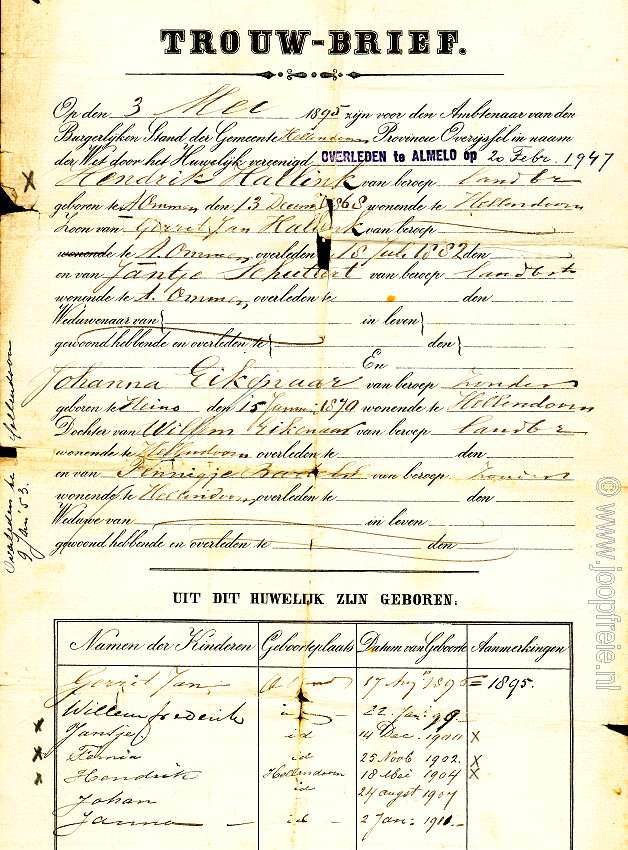 TROUW-BRIEF.
Op den 3 Mei 1895 zijn voor den Ambtenaar van den
Burgerlijken Stand der Gemeente Hellendoorn Provincie Overijssel in naam
der Wet door het Huwelijk vereenigd OVERLEDEN te ALMELO op 20 Febr. 1947
Hendrik Hallink van beroep landbr
geboren te A. Ommen den 13 1868 wonende te Hellendoorn
Zoon van Gerrit Jan Hallink van beroep
wonende te A. Ommen, overleden 18 Juli 1882 den
en van Jantje Schuttert van beroep landbr
wonende te A. Ommen, overleden te den
Weduwenaar van in leven
gewoond hebbende en overleden te den
En
Johanna Eikenaar van beroep Zonder
geboren te Heino den 15 Januari 1870 wonende te Hellendoorn
Dochter van Willem Eikenaar van beroep landbr
wonende te Hellendoorn overleden te den
en van van beroep Zonder
wonende te Hellendoorn, overleden te den
Weduwe van in leven
gewoond hebbende en overleden te den
Overleden te Hellendoorn
9 Jan 53.
UIT DIT HUWELIJK ZIJN GEBOREN:
Namen der Kinderen Geboorteplaats Datum van Geboorte Aanmerkingen
Gerrit Jan 17 1896 = 1895.
Willem frederik 22 Jan 99.
Jantje id 14 Dec. X
Femia id 25 Novb 1902. X
Hendrik Hellendoorn 18 Mei 1904 X
Johan id 24 augst 1907
Janna id 2 Jan. 1911.
© www.joopfreie.nl